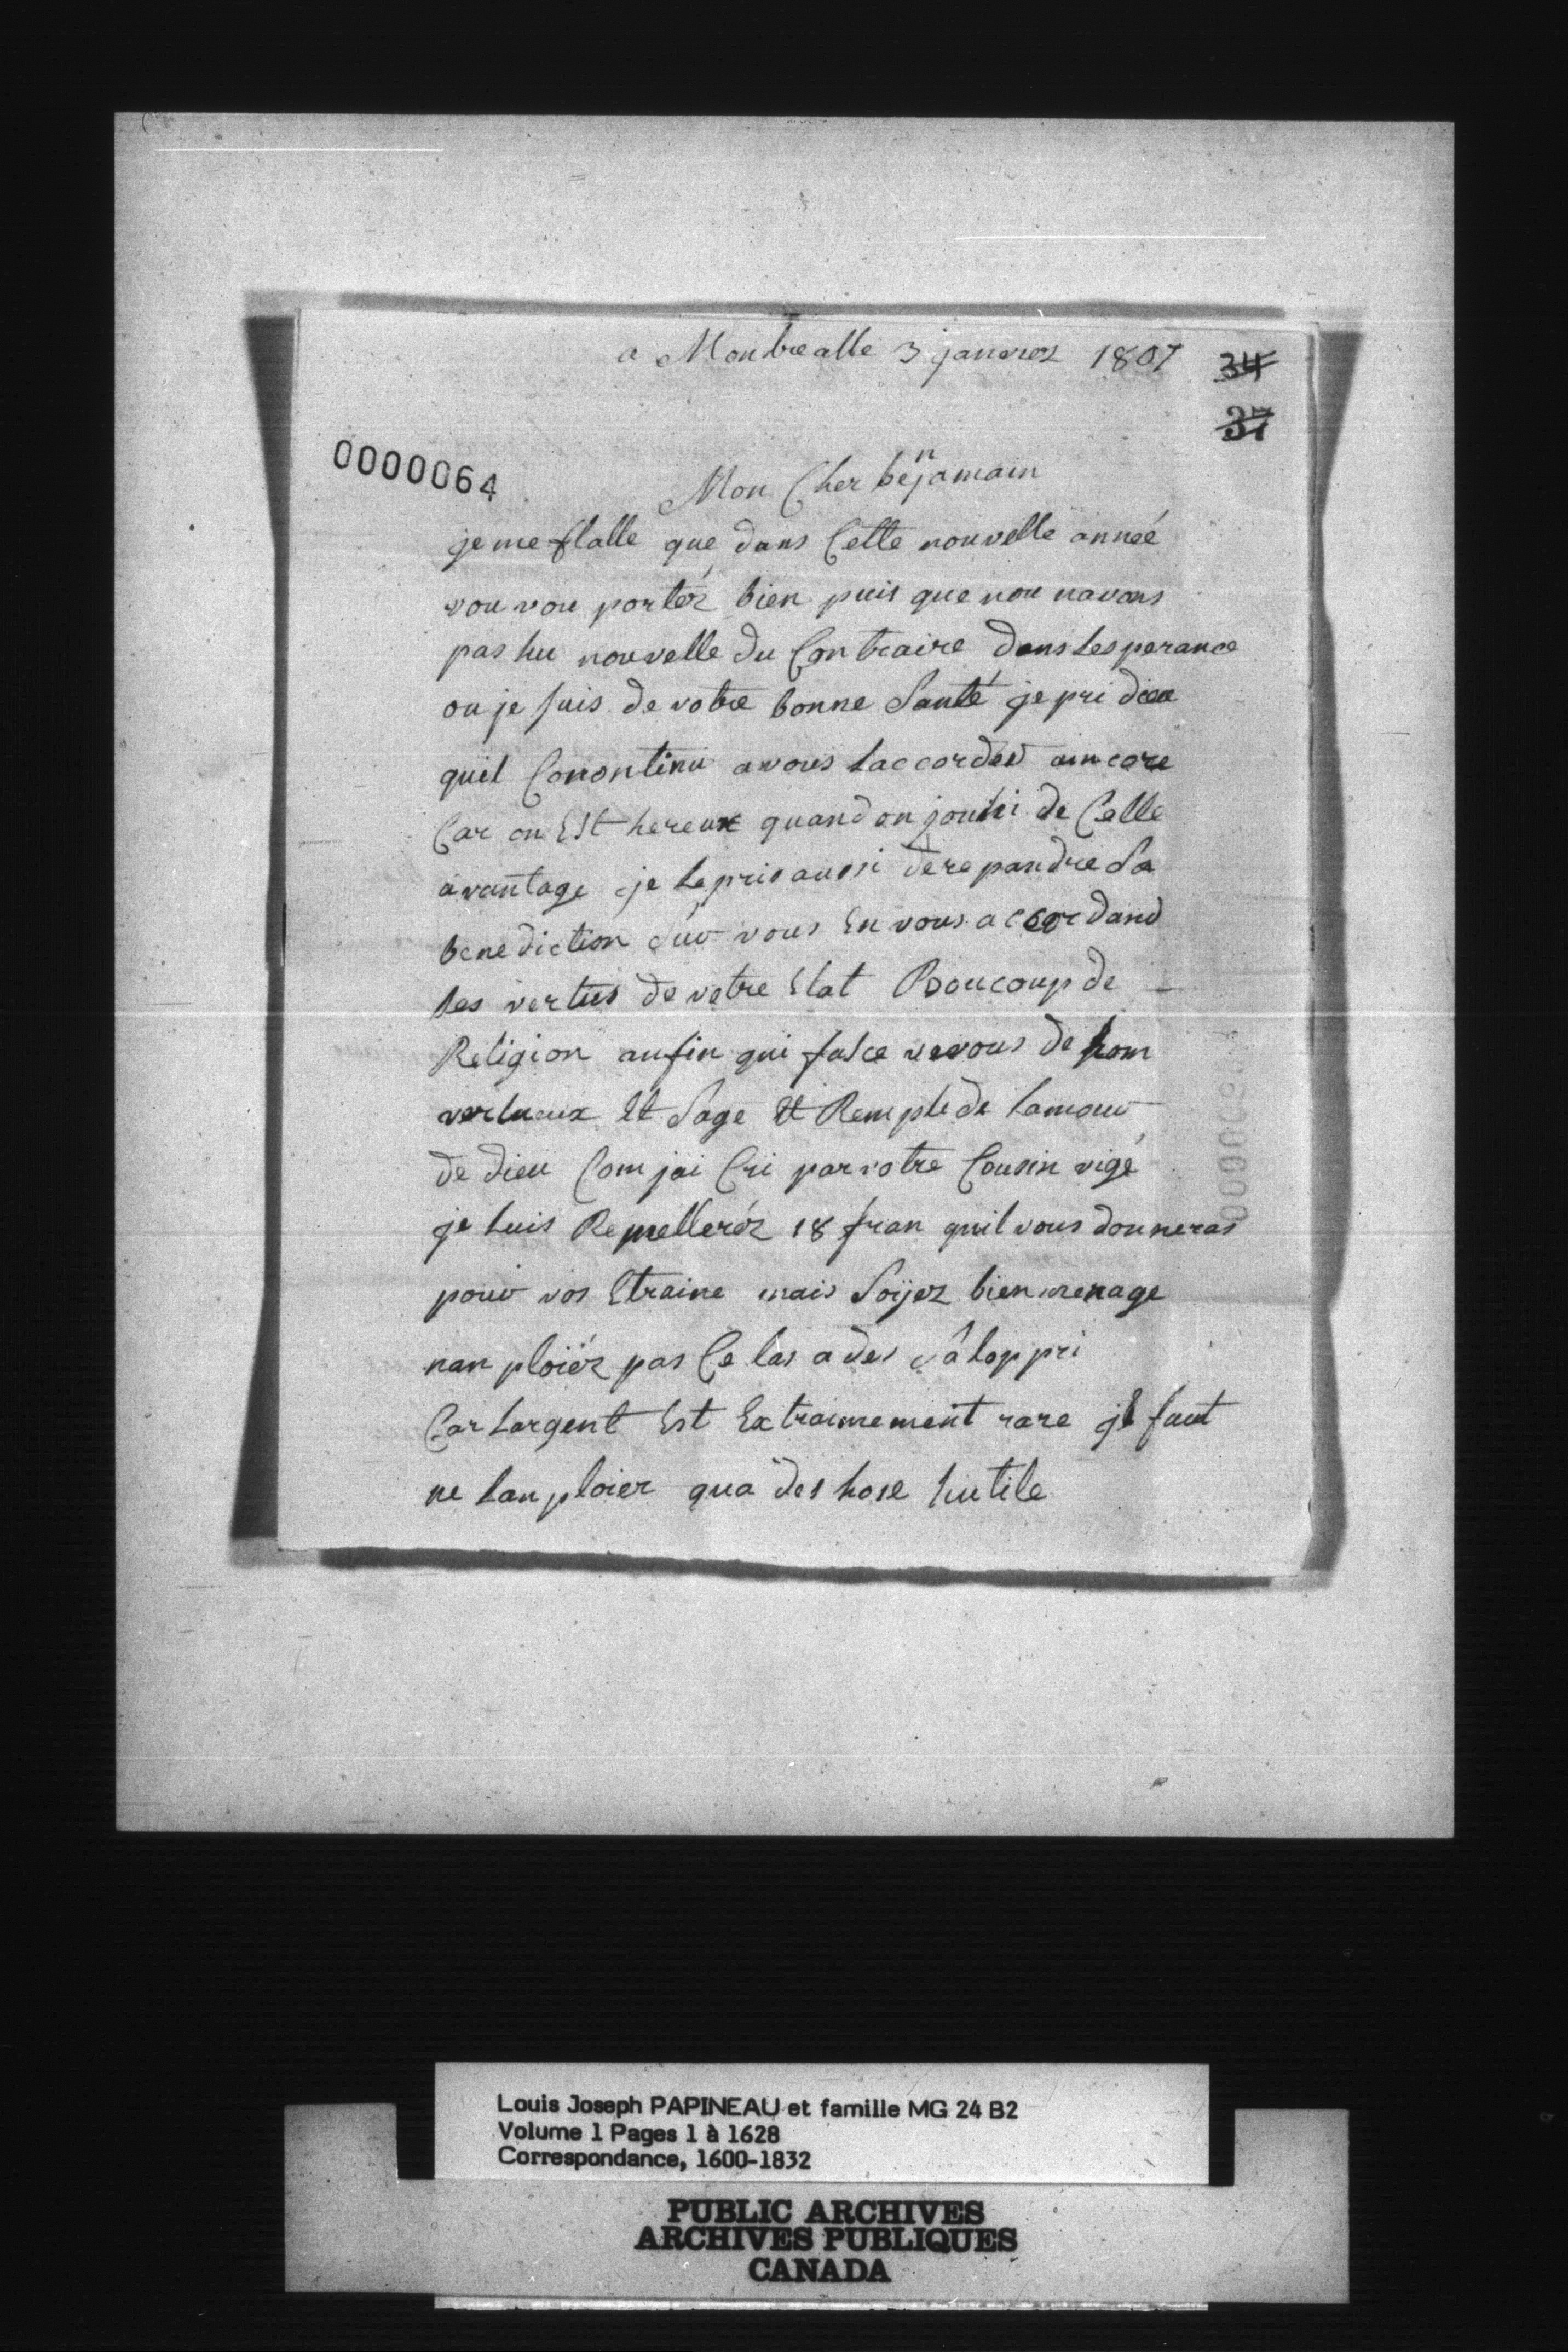 a Montrealle 3 janviez 1807
34
37
0000064
Mon Cher benjamain
je me flatte que dans Cette nouvelle anneé
vou vou portéz bien puis que nou navons
pas hu nouvelle du Contraire dans lesperance
ou je suis de votre bonne Santé je pri dieu
quil Conontinu avous laccorder aincore
Car on Est hereux quand on jouhi de Cette
avantage je le pris aussi de repandre Sa
benediction Sur vous En vous accordand
les vertus de votre Etat Boucoup de
Religion anfin qui fasce vevous de hom
vertueux Et Sage Et Remple de lamour
de dieu Com jai Cri par votre Cousin vigé
je luis Remetteréz 18 fran quil vous donneras
pour vos Etraine mais Soÿez bien menage
nan ploiéz pas Ce las a des
Car largent Est Extraimement rare il faut
ne lan ploier qua des hose hutile
Louis Joseph PAPINEAU et famille MG 24 B2
Volume 1 Pages 1 à 1628
Correspondance, 1600-1832
PUBLIC ARCHIVES
ARCHIVES PUBLIQUES
CANADA